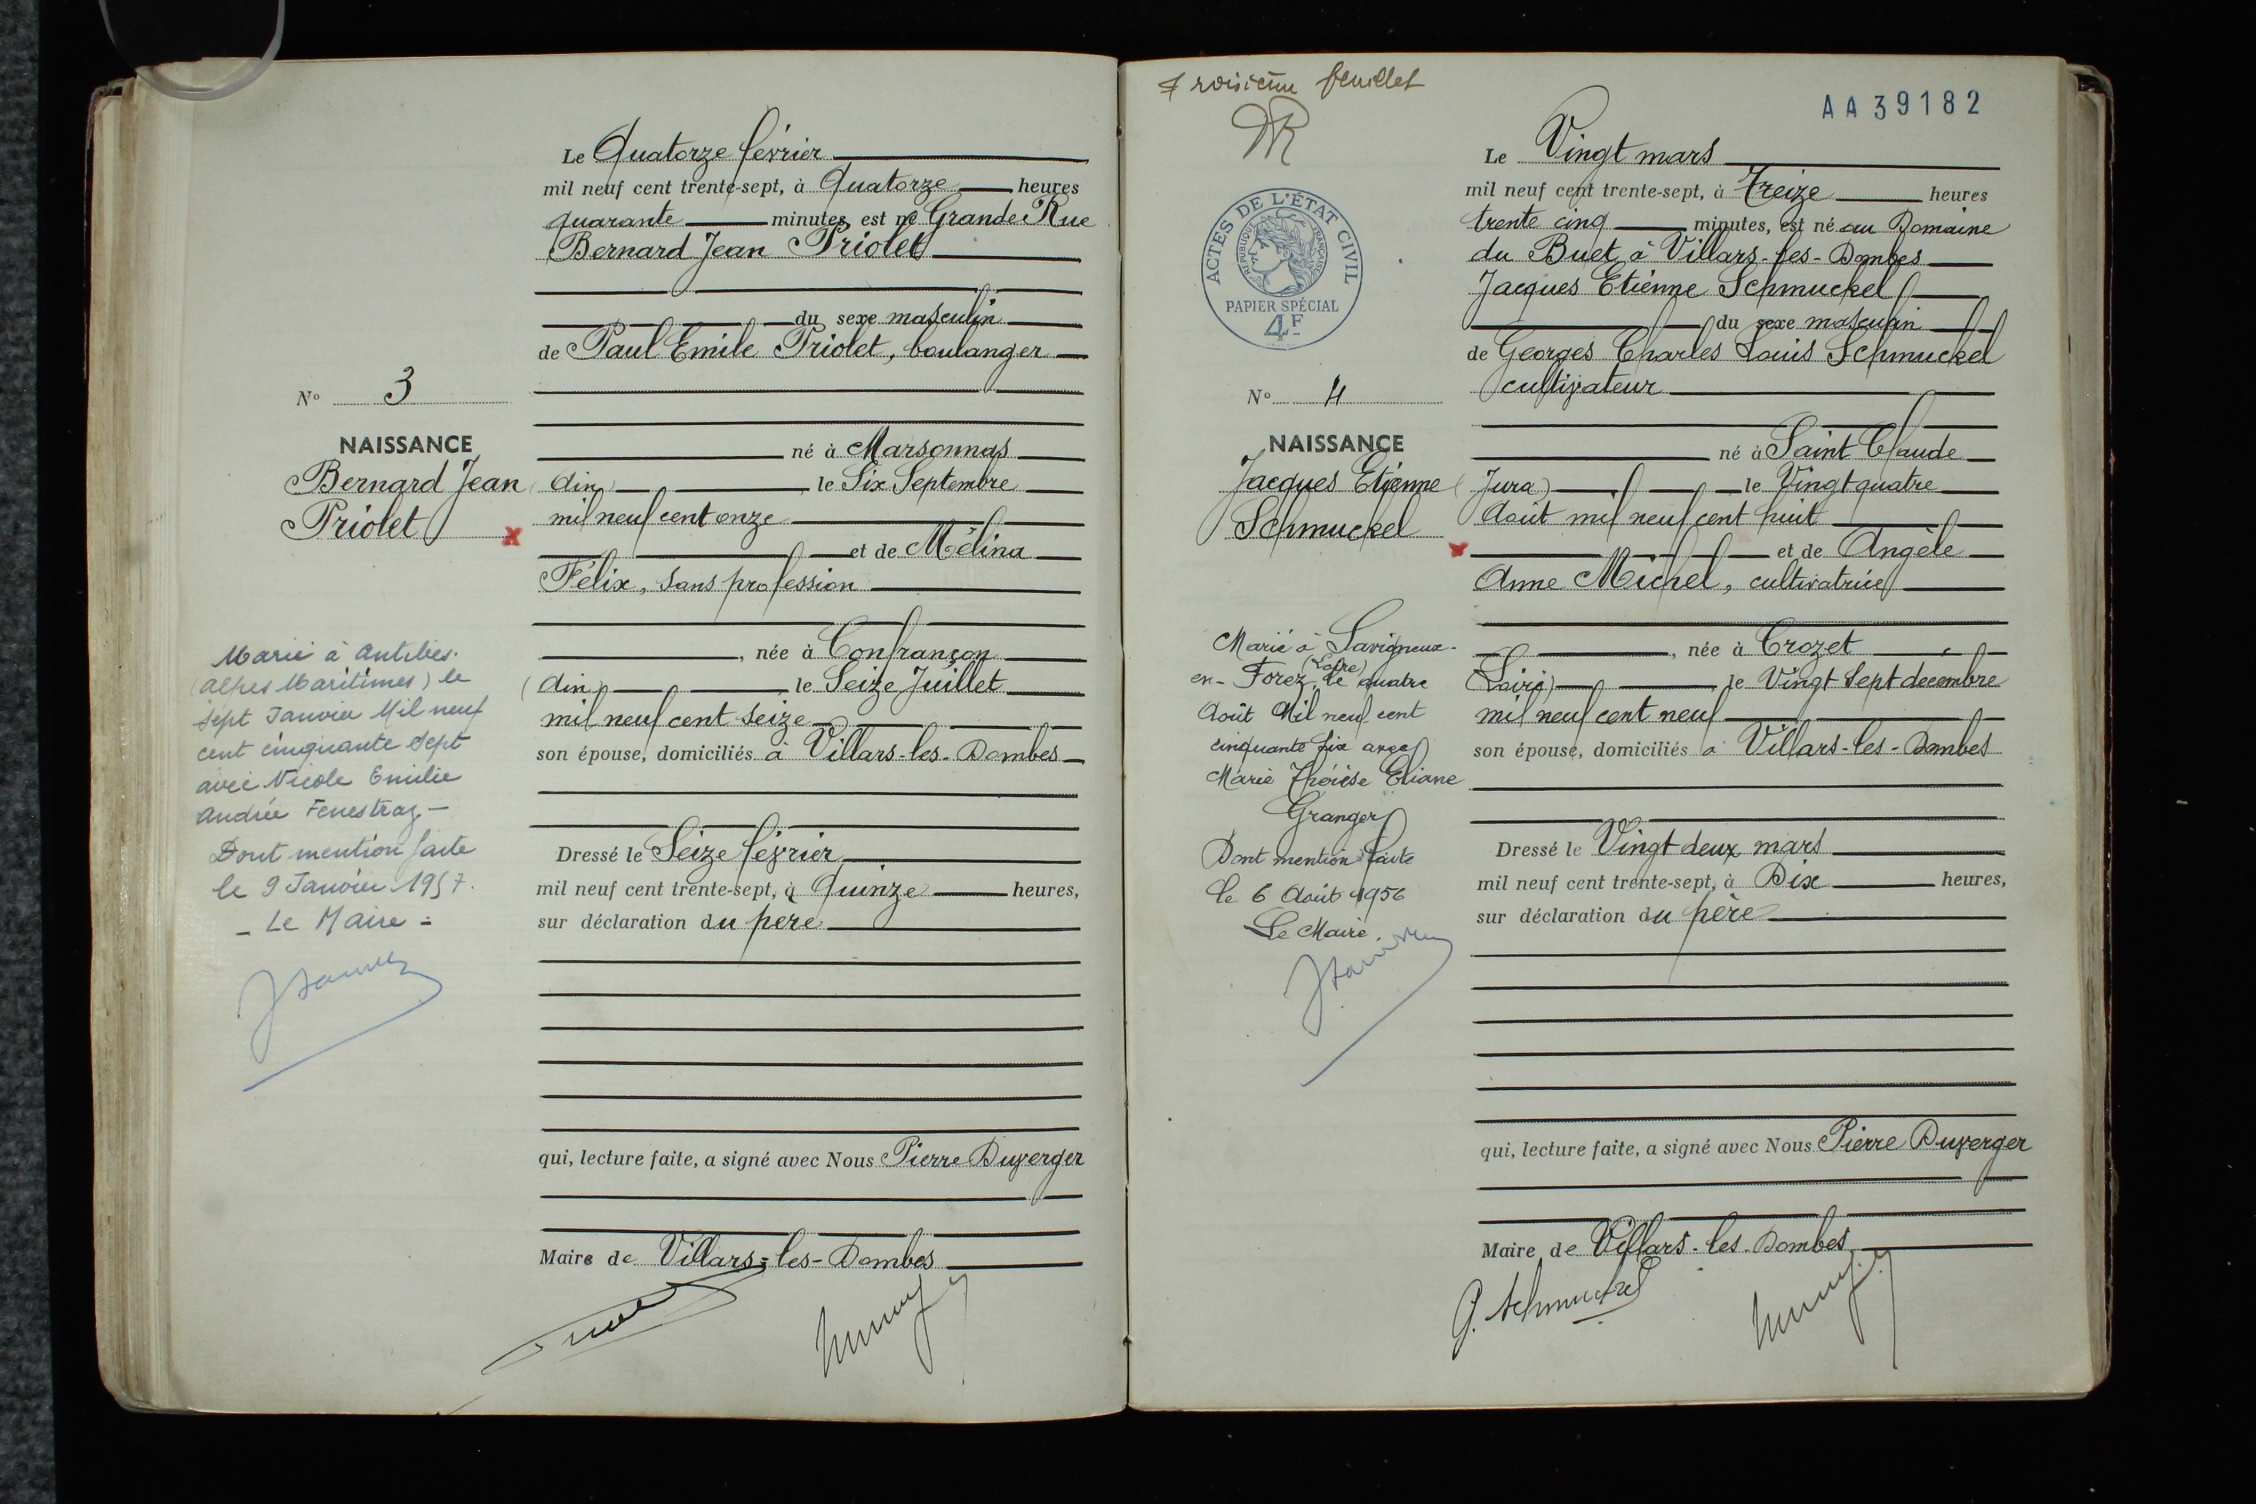 Le Quatorze février
mil neuf cent trente-sept, à Quatorze heures
quarante minutes, est né Grande Rue
Bernard Jean Priolet
du sexe masculin
de Paul Emile Priolet, boulanger
No 3
NAISSANCE
Bernard Jean
Priolet
né à Marsonnas
(Ain) le Six Septembre
mil neuf cent onze
et de Mélina
Félix, sans profession
, née à Confrançon
(Ain) , le Seize Juillet
mil neuf cent seize
son épouse, domiciliés à Villars-les-Dombes
Marié à Antibes.
(Alpes Maritimes) le
sept Janvier Mil neuf
cent cinquante sept
avec Nicole Emilie
Andrée Fenestraz.-
Dont mention faite
le 9 Janvier 1957.
- Le Maire -
Dressé le Seize février
mil neuf cent trente-sept, à Quinze heures,
sur déclaration du père
qui, lecture faite, a signé avec Nous Pierre Duverger
Maire de Villars-les-Dombes
Troisième feuillet
AA39182
ACTES DE L'ÉTAT CIVIL
RÉPUBLIQUE FRANÇAISE
PAPIER SPÉCIAL
4F
Le Vingt mars
mil neuf cent trente-sept, à Treize heures
trente cinq minutes, est né au Domaine
du Buet à Villars-les-Dombes
Jacques Etienne Schmuckel
du sexe masculin
de Georges Charles Louis Schmuckel
cultivateur
No 4
NAISSANCE
Jacques Etienne
Schmuckel
né à Saint Claude
(Jura) le Vingt quatre
Août mil neuf cent huit
et de Angèle
Anne Michel, cultivatrice
, née à Crozet
(Loire) , le Vingt Sept décembre
mil neuf cent neuf
son épouse, domiciliés à Villars-les-Dombes
Marié à Savigneux-
en-Forez, (Loire) le quatre
Août Mil neuf cent
cinquante six avec
Marie Thérèse Eliane
Granger
Dont mention faite
le 6 Août 1956
Le Maire.
Dressé le Vingt deux mars
mil neuf cent trente-sept, à Dix heures,
sur déclaration du père
qui, lecture faite, a signé avec Nous Pierre Duverger
Maire de Villars-les-Dombes
G. Schmuckel